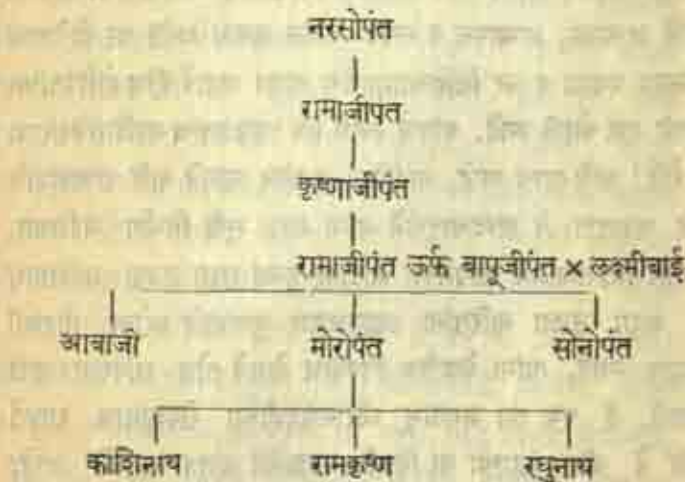 नरसोपंत
रामाजीपंत
कृष्णाजीपंत
रामाजीपंत उर्फ बापूजीपंत × लक्ष्मीबाई
आबाजी मोरोपंत सोनोपंत
काशिनाथ रामकृष्ण रघुनाथ